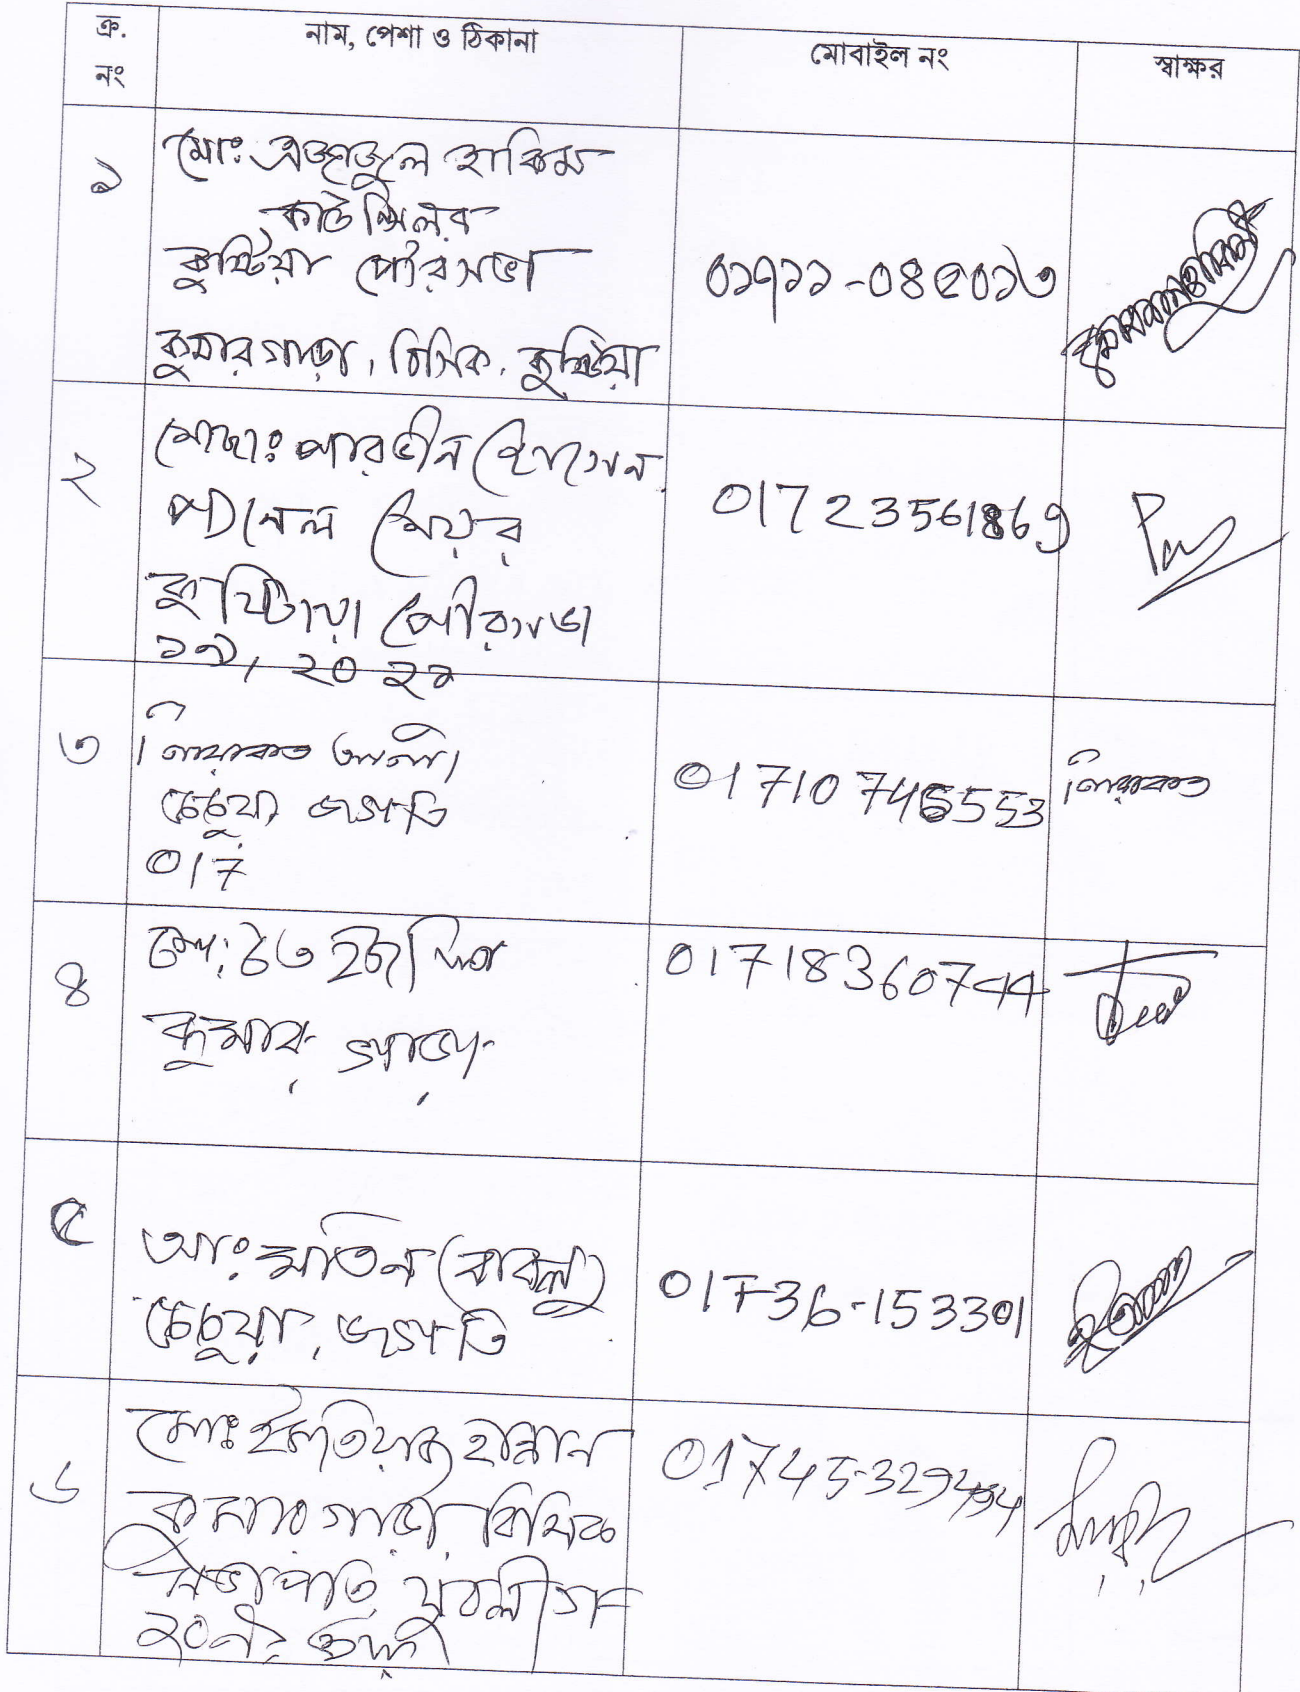 ক্র. নং
নাম, পেশা ও ঠিকানা
মোবাইল নং
স্বাক্ষর
১
মোঃ এজাজুল হাকিম
কাউন্সিলর
কুষ্টিয়া পৌরসভা
কুমারগাড়া, বিসিক, কুষ্টিয়া
০১৭১১-০৪৫০১৩
২
মোছাঃ পারভীন হোসেন
প্যানেল মেয়র
কুষ্টিয়া পৌরসভা
১৯, ২০ ২১
01723561869
৩
লিয়াকত আলী
চেচুয়া জগতি
017
01710 745553
লিয়াকত
৪
কুমার গাড়া
01718360744
৫
আঃ মতিন (বাবলু)
চেচুয়া, জগতি
01736-153301
৬
মোঃ ইমতিয়াজ হান্নান
কুমার গাড়া, বিসিক
সভাপতি যুবলীগ
২০নং
01745-329494